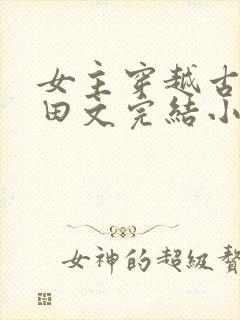 女主穿越古
田文完結小
女神的超級贅